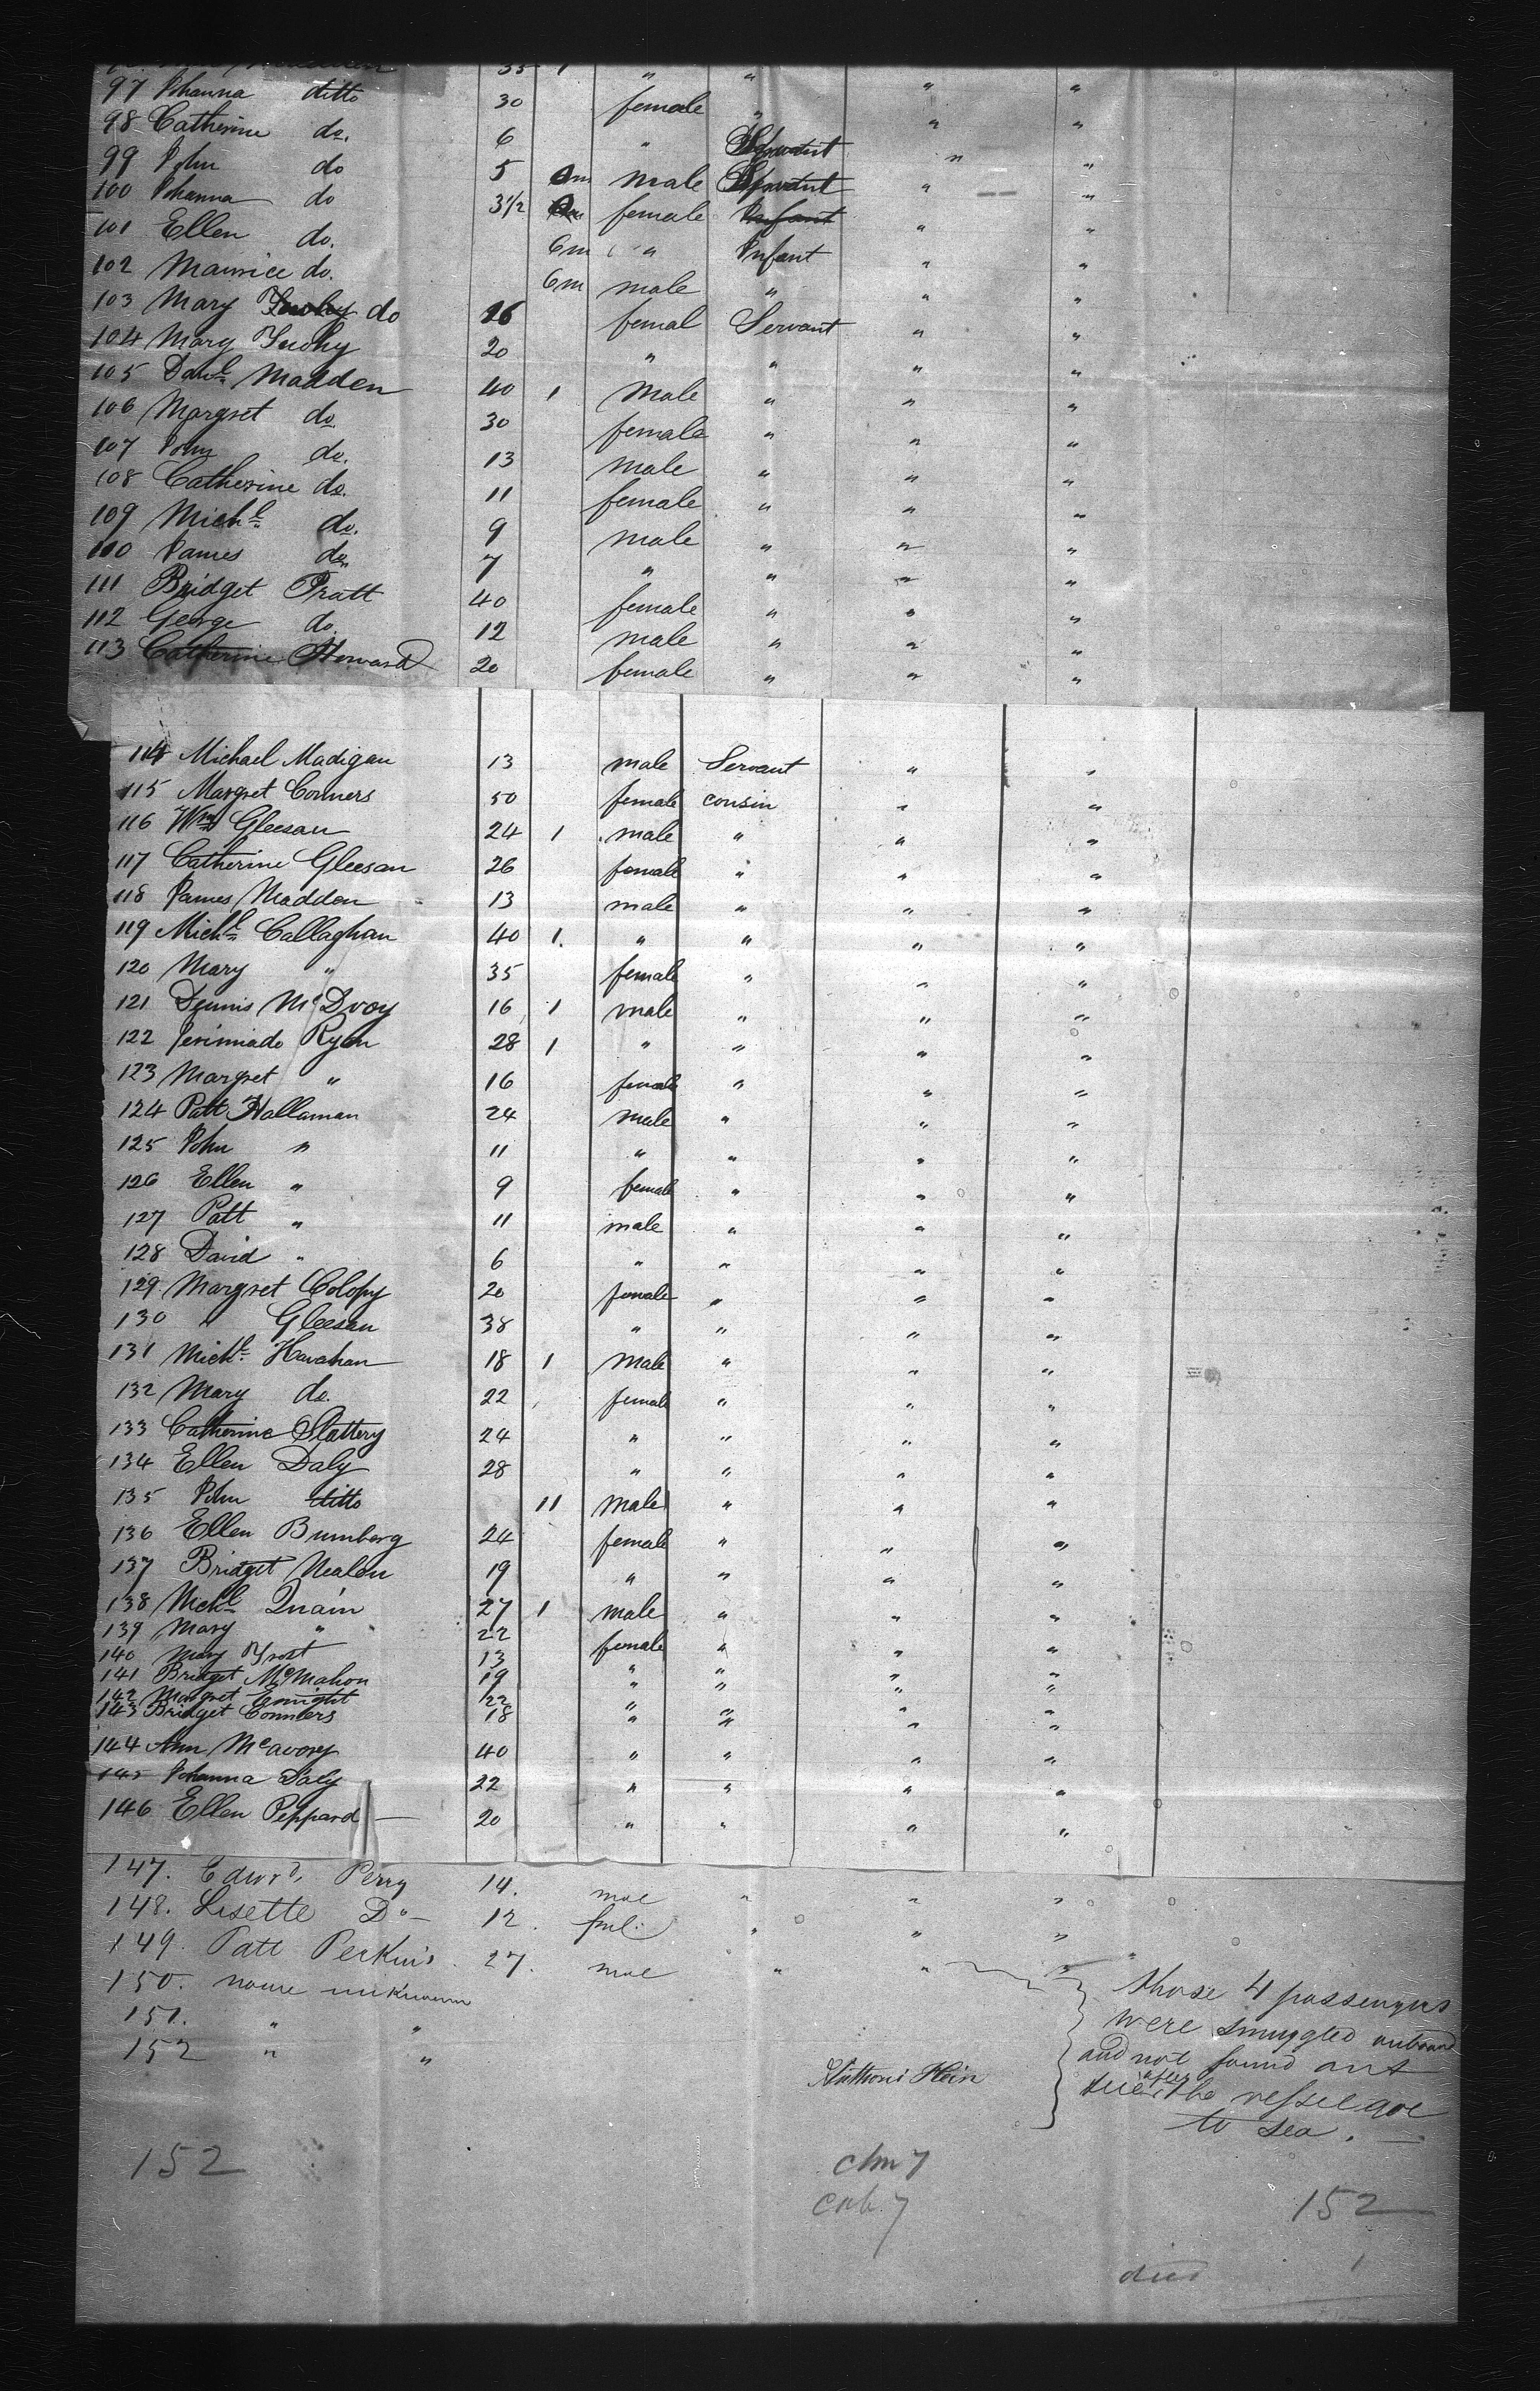 35 1 " "
97 Johanna ditto 30 female " " "
98 Catherine do. 6 " Servant " "
99 John do 5 male Servant " "
100 Johanna do 3 1/2 female Infant " "
101 Ellen do. 6m " Infant " "
102 Maurice do. 6m male " " "
103 Mary do 16 femal Servant " "
104 Mary Tuohy 20 " " " "
105 Danl Madden 40 1 Male " " "
106 Margret do. 30 female " " "
107 John do. 13 male " " "
108 Catherine do. 11 female " " "
109 Michl do. 9 male " " "
110 James do. 7 " " " "
111 Bridget Pratt 40 female " " "
112 George do. 12 male " " "
113 Catherine Howard 20 female " " "
114 Michael Madigan 13 male Servant " "
115 Margret Conners 50 female cousin " "
116 Wm Gleesan 24 1 male " " "
117 Catherine Gleesan 26 female " " "
118 James Madden 13 male " " "
119 Michl Callaghan 40 1. " " " "
120 Mary " 35 female " " "
121 Dennis McDvoy 16 1 male " " "
122 Jerimiado Ryan 28 1 " " " "
123 Margret " 16 female " " "
124 Patt Hallaman 24 male " " "
125 John " 11 " " " "
126 Ellen " 9 female " " "
127 Patt " 11 male " " "
128 David " 6 " " " "
129 Margret Colopy 20 female " " "
130 " Gleesan 38 " " " "
131 Michl. Hanahan 18 1 Male " " "
132 Mary do. 22 female " " "
133 Catherine Slattery 24 " " " "
134 Ellen Daly 28 " " " "
135 John ditto 11 Male " " "
136 Ellen Bumberg 24 female " " "
137 Bridget Nealon 19 " " " "
138 Michl Quain 27 1 male " " "
139 Mary " 22 female " " "
140 Mary Frost 13 " " " "
141 Bridget McMahon 19 " " " "
142 Margret Enright 22 " " " "
143 Bridget Conners 18 " " " "
144 Ann McAvoy 40 " " " "
145 Johanna Daly 22 " " " "
146 Ellen Peppard 20 " " " "
147. Edwrd. Perry 14. mal " " "
148. Lisette Do 12. fml. " " "
149. Patt Perkins. 27. mal " " "
150. name unknown
151. " "
152 " "
those 4 passengers
were smuggled onboard
and not found out
till after the vessel got
to sea.
Hein
152
152
died 1